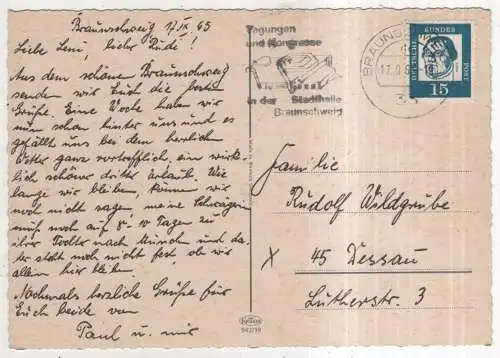 Braunschweig 17. IX 65
Liebe Leni, lieber Rudi!
Aus dem schönen Braunschweig
senden wir Euch die besten
Grüße. Eine Woche haben wir
nun schon hinter uns und es
gefällt uns bei dem herrlichen
Wetter ganz vortrefflich, ein wirk-
lich schöner dritter Urlaub. Wie
lange wir bleiben, können wir
noch nicht sagen, meine Schwägerin
muß noch auf 8-10 Tagen zu
ihrer Tochter nach und da-
her steht noch nicht fest, ob wir
allein hier bleiben.
Nochmals herzliche Grüße für
Euch beide von
Paul u.
Tagungen
und Kongresse
in der Stadthalle
Braunschweig
BRAUNSCHWEIG
17.9.65
33
DEUTSCHE BUNDESPOST
15
Familie
Rudolf Wildgrube
x 45 Dessau
Lutherstr. 3
Krüger
942/19